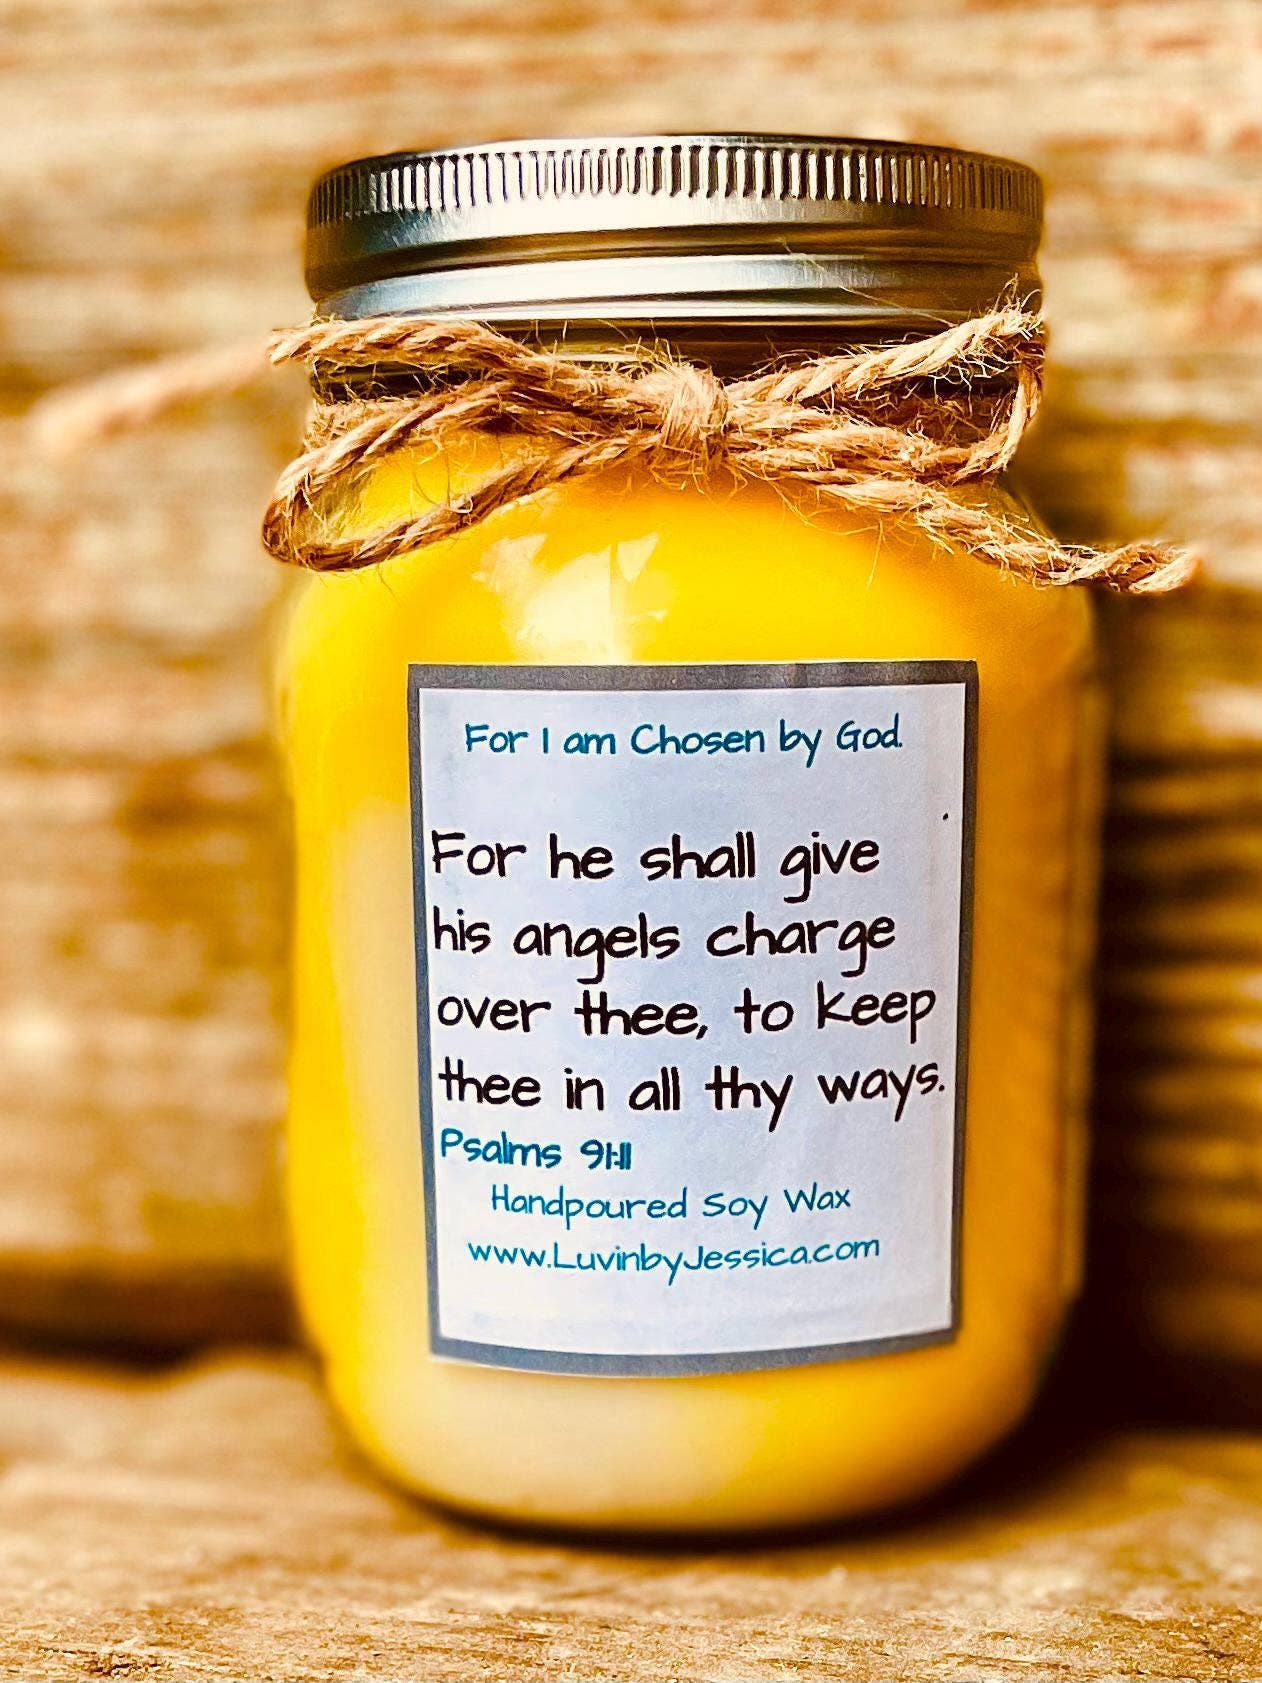 For I am Chosen by God.
For he shall give
his angels charge
over thee, to keep
thee in all thy ways.
Psalms 91:11
Handpoured Soy Wax
www.LuvinbyJessica.com